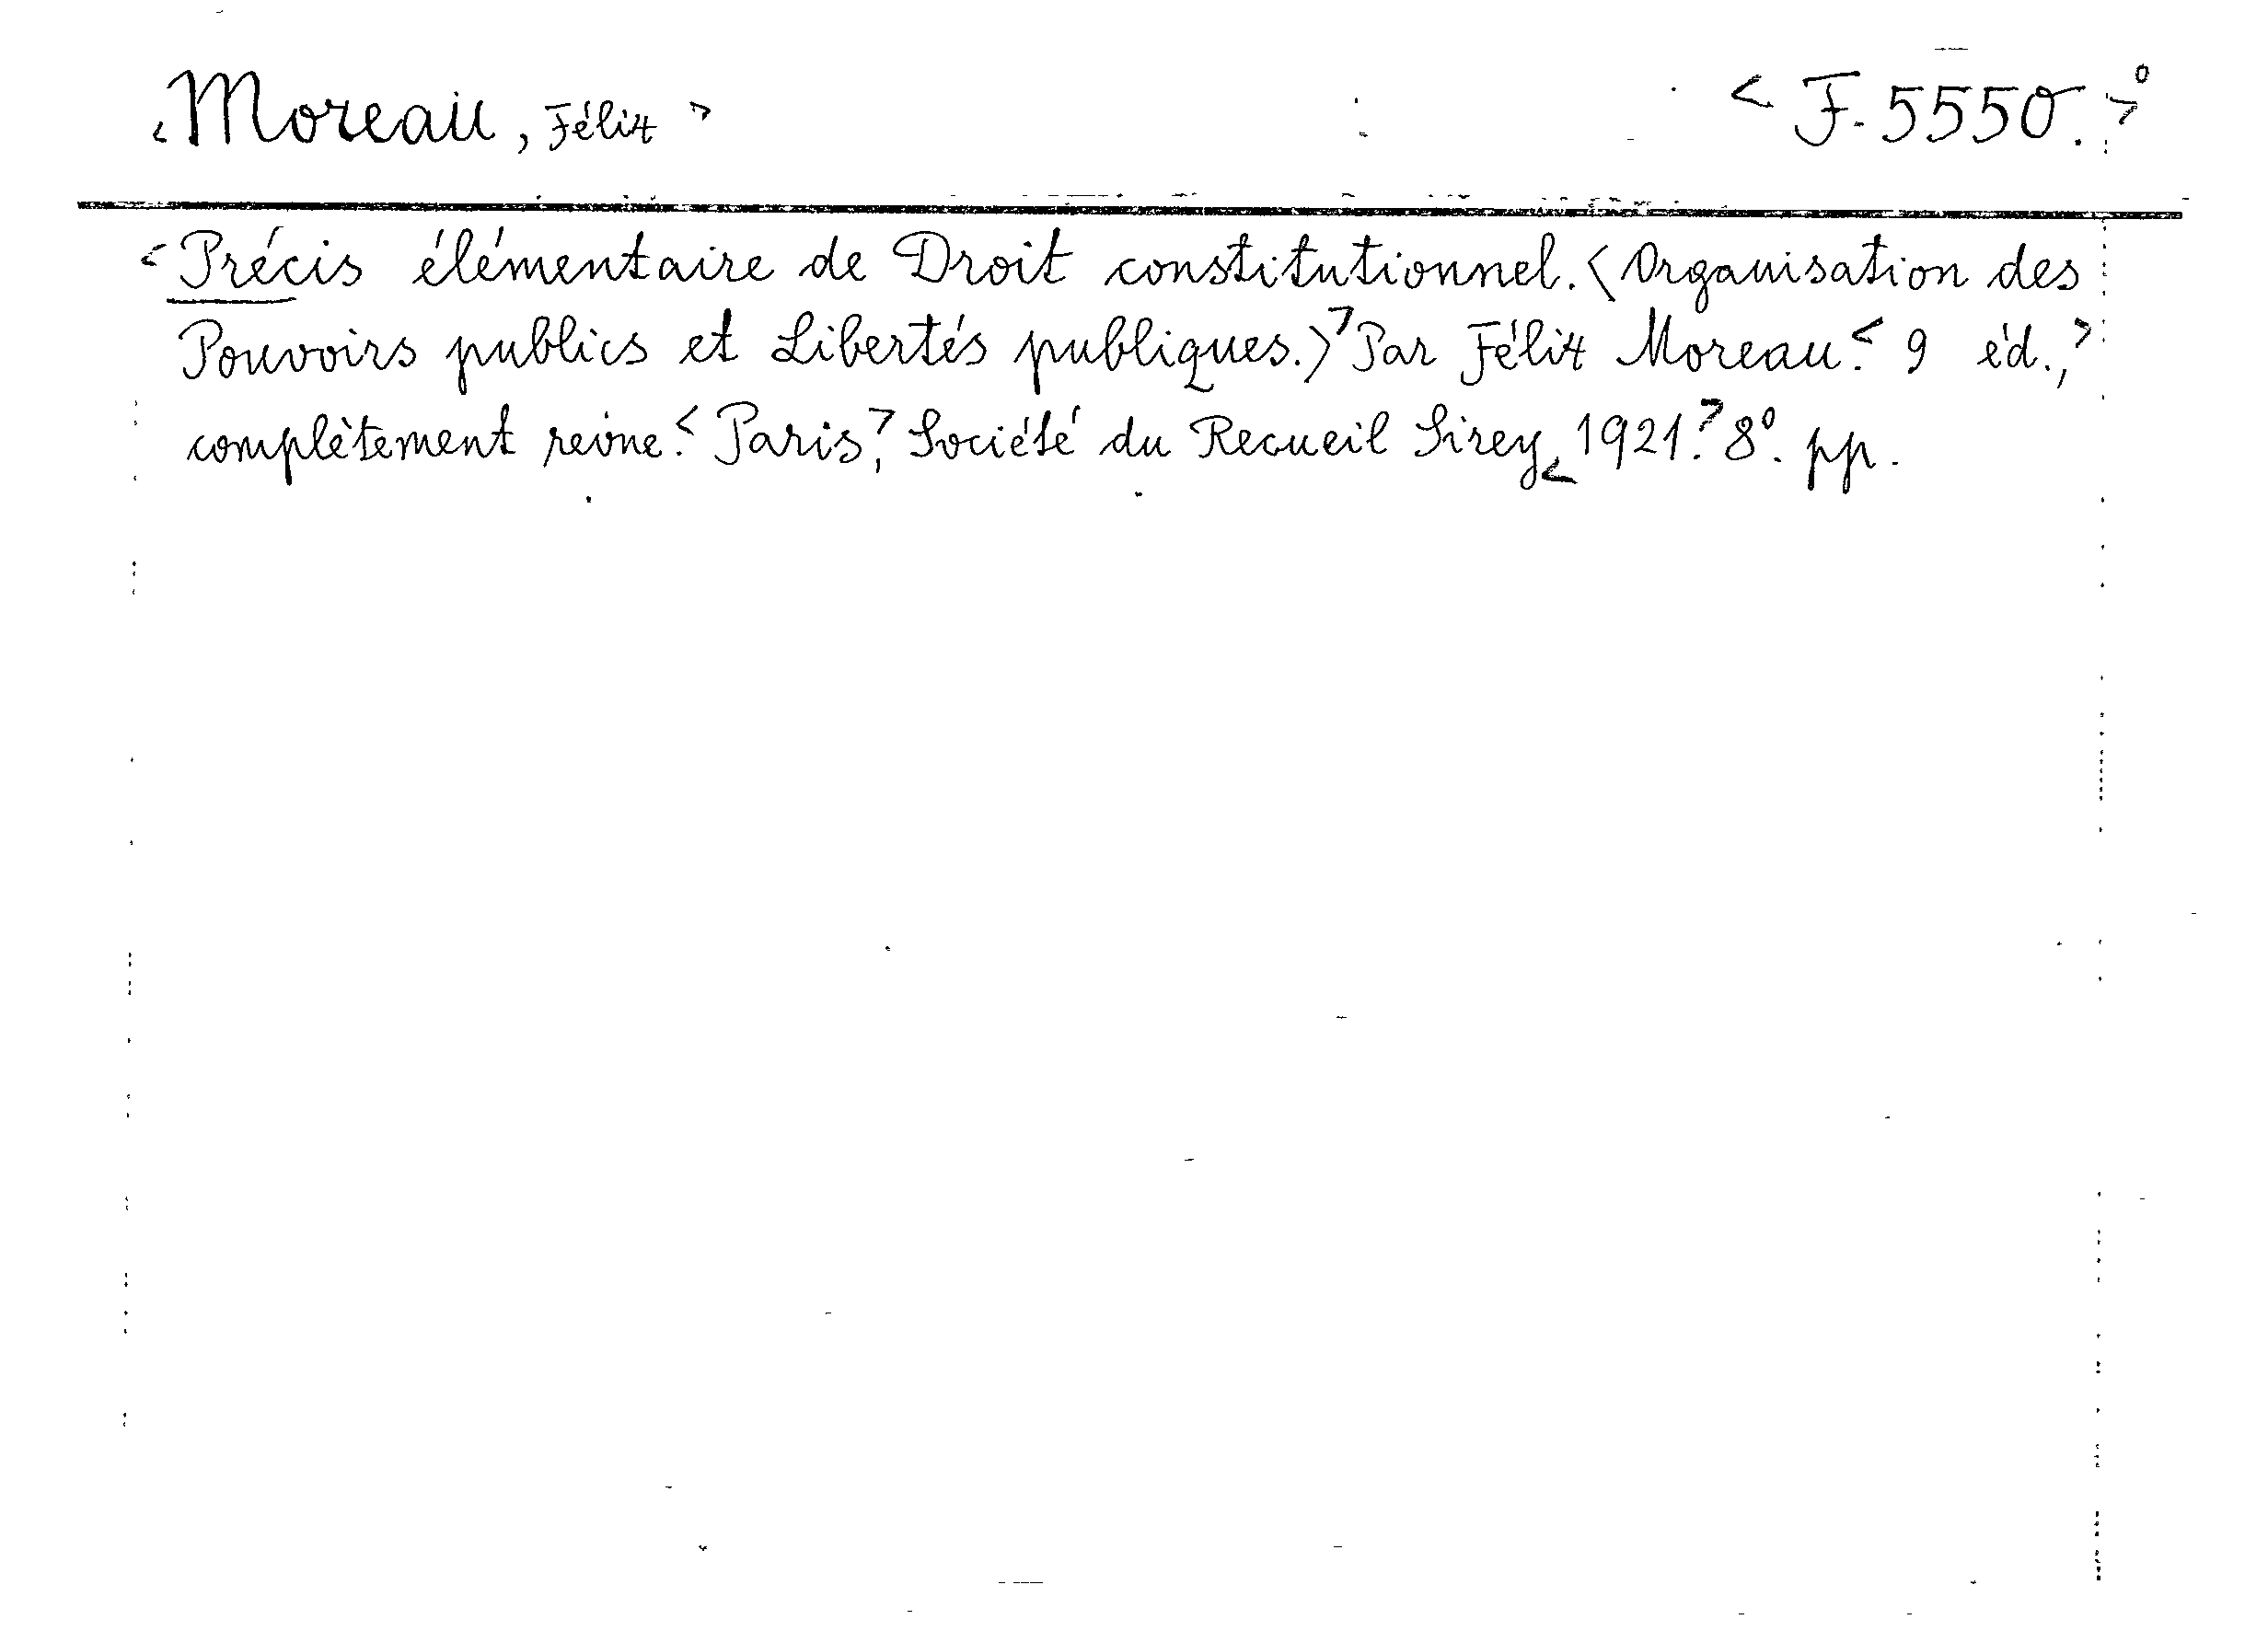 <Moreau, Félix> <F. 5550.>°
<Précis élémentaire de Droit constitutionnel. (Organisation des
Pouvoirs publics et Libertés publiques.)> Par Félix Moreau.< 9 éd.,>
complètement revue.< Paris,> Société du Recueil Sirey< 1921.> 8°. pp.